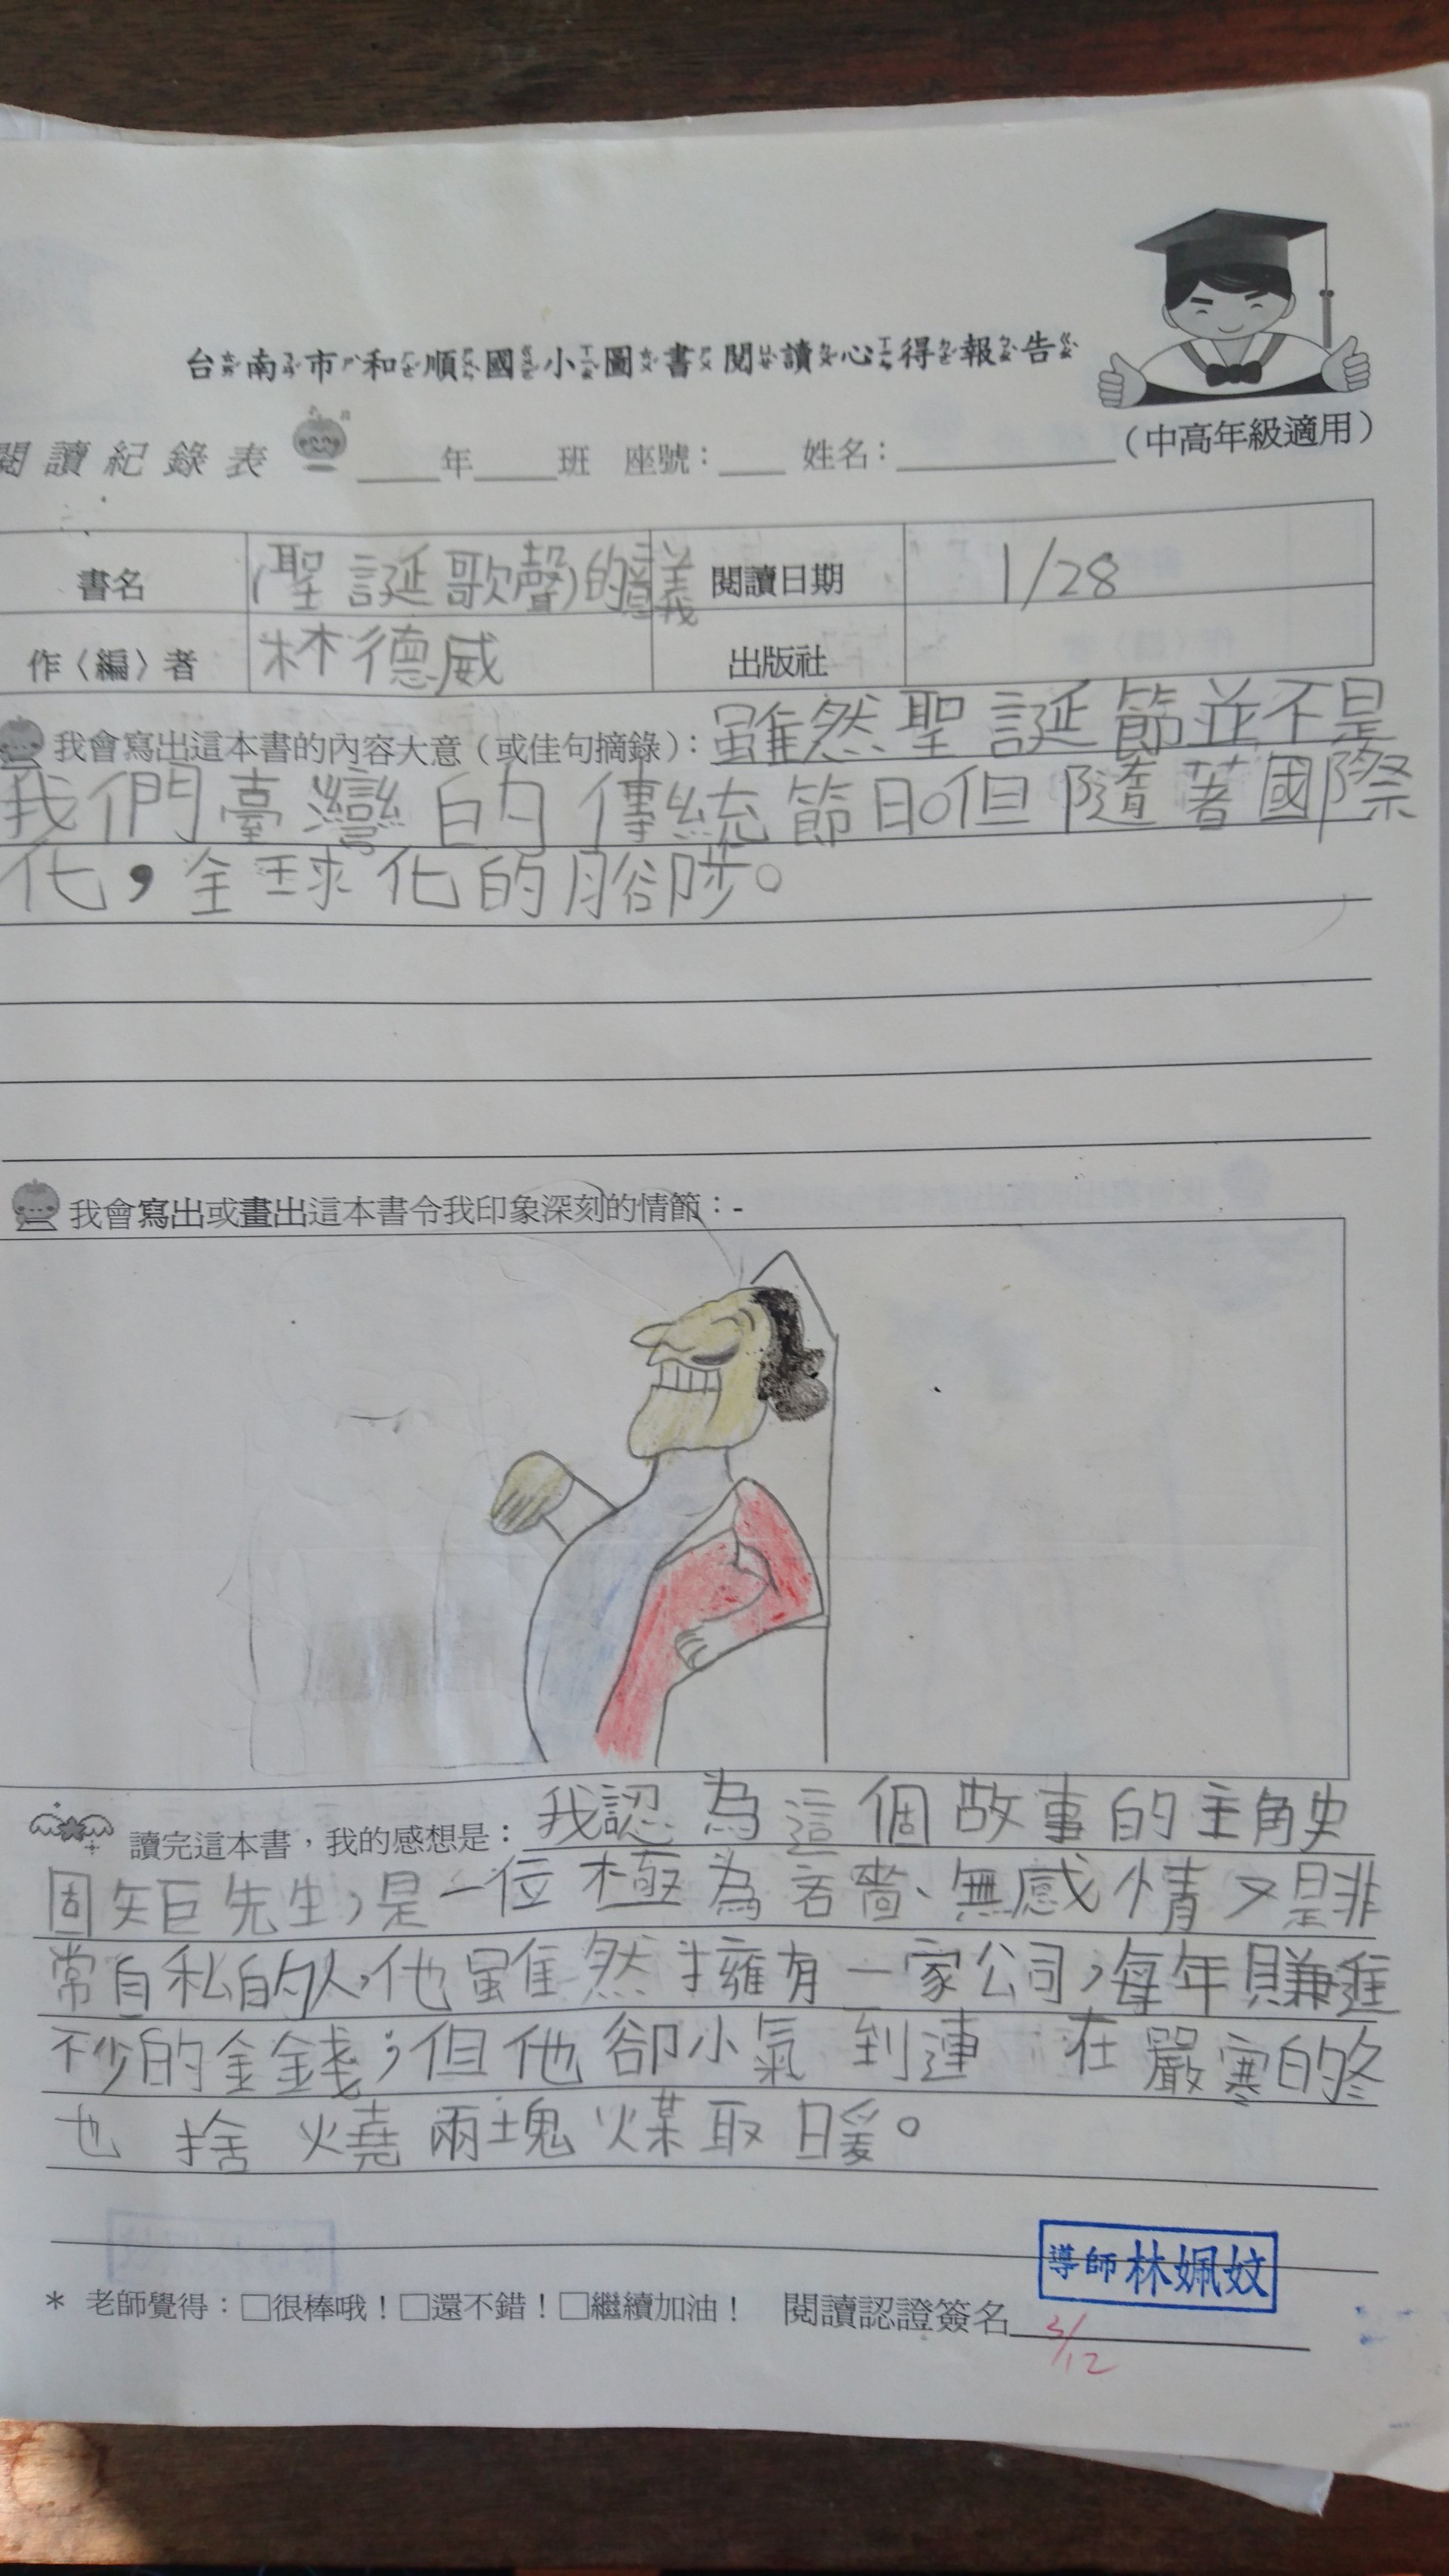 台南市和順國小圖書閱讀心得報告
閱讀紀錄表 ____年____班 座號：___ 姓名：__________ （中高年級適用）
書名 (聖誕歌聲)的意義 閱讀日期 1/28
作〈編〉者 林德威 出版社
我會寫出這本書的內容大意（或佳句摘錄）：雖然聖誕節並不是
我們臺灣的傳統節日。但隨著國際
化，全球化的腳步。
我會寫出或畫出這本書令我印象深刻的情節：-
讀完這本書，我的感想是：我認為這個故事的主角史
固矩先生，是一位極為吝嗇、無感情又是非
常自私的人，他雖然擁有一家公司，每年賺進
不少的金錢；但他卻小氣到連 在嚴寒的冬
也 捨 燒兩塊煤取暖。
導師 林姵妏
* 老師覺得：□很棒哦！□還不錯！□繼續加油！ 閱讀認證簽名
3/12